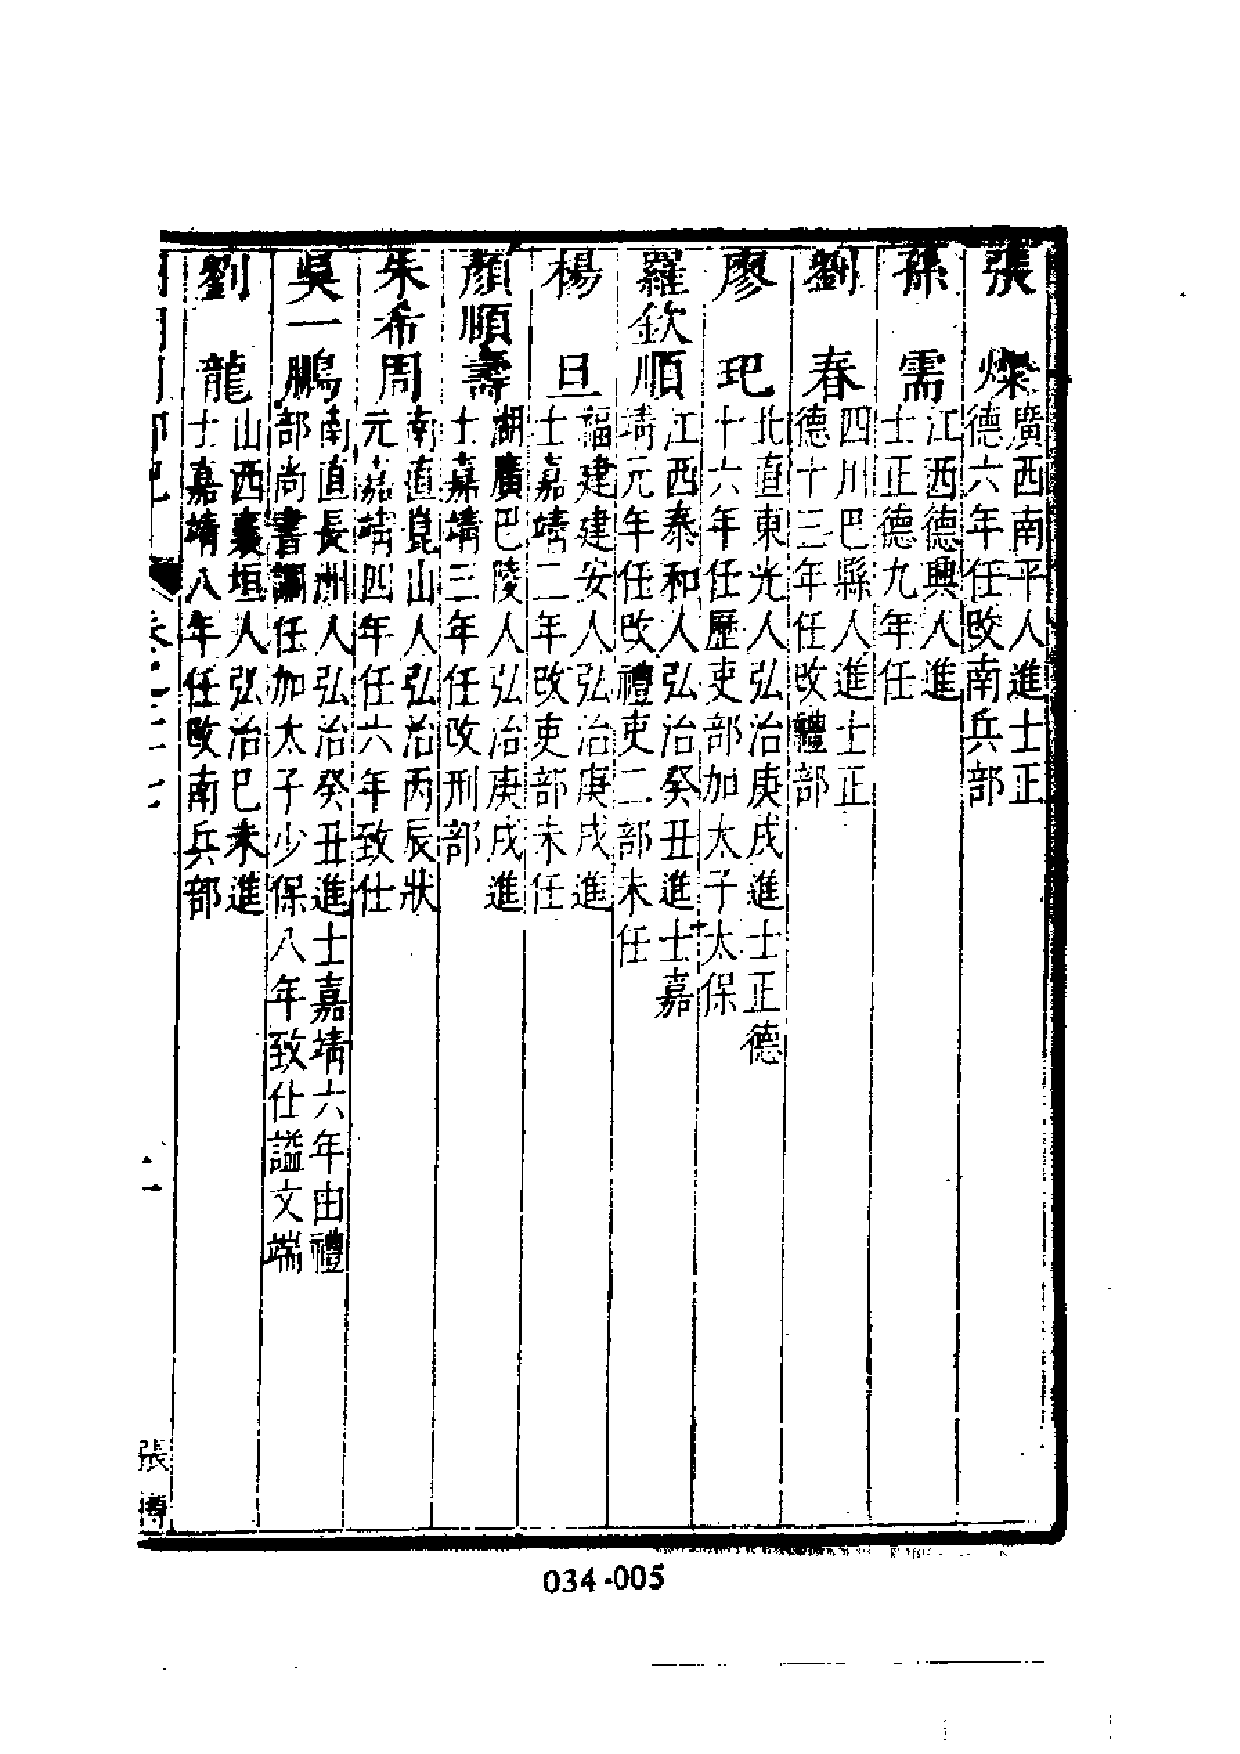 張 燦
廣西南平人進士正
德六年任改南兵部
孫 需
江西德興人進
士正德九年任
劉 春
四川巴縣人進士正
德十三年任改禮部
廖 玘
北直東光人弘治庚戌進士正德
十六年任歷吏部加太子太保
羅欽順
江西泰和人弘治癸丑進士嘉
靖元年任改禮吏二部未任
楊 旦
福建建安人弘治庚戌進
士嘉靖二年改吏部未任
顏順壽
湖廣巴陵人弘治庚戌進
士嘉靖三年任改刑部
朱希周
南直崑山人弘治丙辰狀
元嘉靖四年任六年致仕
吳一鵬
南直長洲人弘治癸丑進士嘉靖六年由禮
部尚書調任加太子少保八年致仕諡文端
劉 龍
山西襄垣人弘治巳未進
士嘉靖八年任改南兵部
張博
034-005